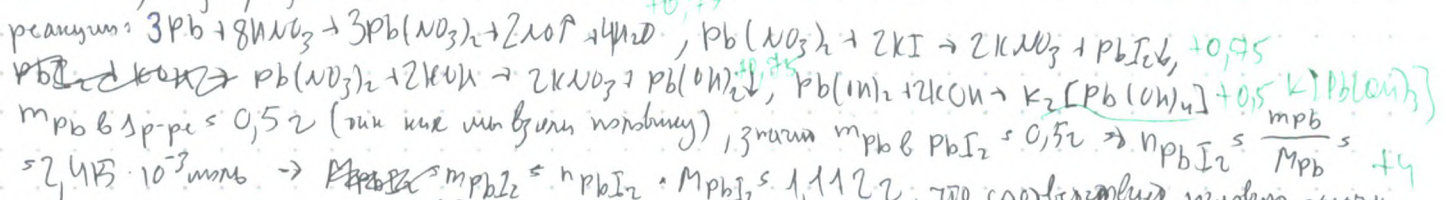 реакции: 3Pb + 8HNO₃ → 3Pb(NO₃)₂ + 2NO↑ + 4H₂O, Pb(NO₃)₂ + 2KI → 2KNO₃ + PbI₂↓, +0,75
Pb(NO₃)₂ + 2KOH → 2KNO₃ + Pb(OH)₂↓, +0,75 Pb(OH)₂ + 2KOH → K₂[Pb(OH)₄] +0,5 K[Pb(OH)₃]
mPb в 1 р-ре = 0,5 г (так как мы взяли половину), значит mPb в PbI₂ = 0,5г ⇒ nPbI₂ = mPb / MPb =
= 2,415 · 10⁻³ моль → mPbI₂ = nPbI₂ · MPbI₂ = 1,112 г, что +4